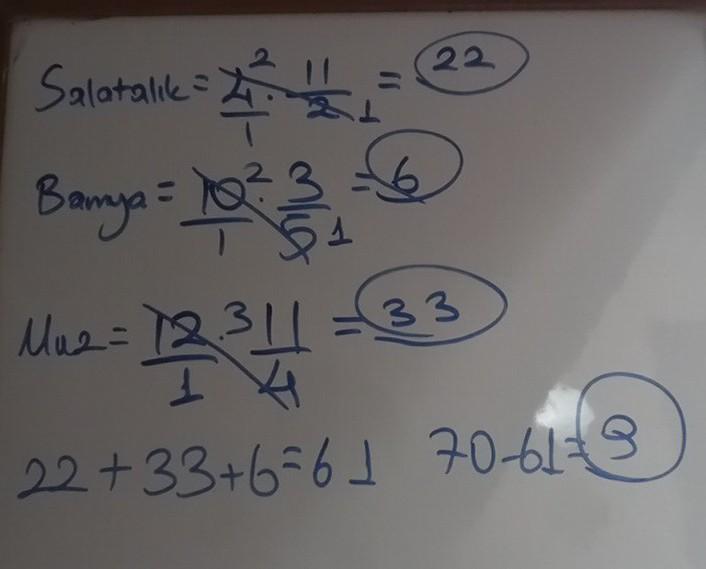 Salatalık = 4/1 2 . 11/2 1 = 22
Bamya = 10/1 2 . 3/5 1 = 6
Muz = 12/1 . 3 11/4 = 33
22 + 33 + 6 = 61 70 - 61 = 9